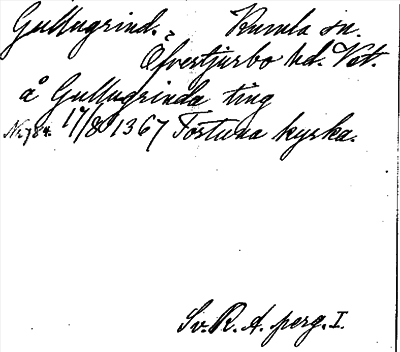 Gullugrind. ? Kumla sn.
Öfvertjurbo hd. Vst.
å Gullugrinda ting
Nr. 784. 17/8 1367 Tortuna kyrka.
Sv. R. A. perg. I.